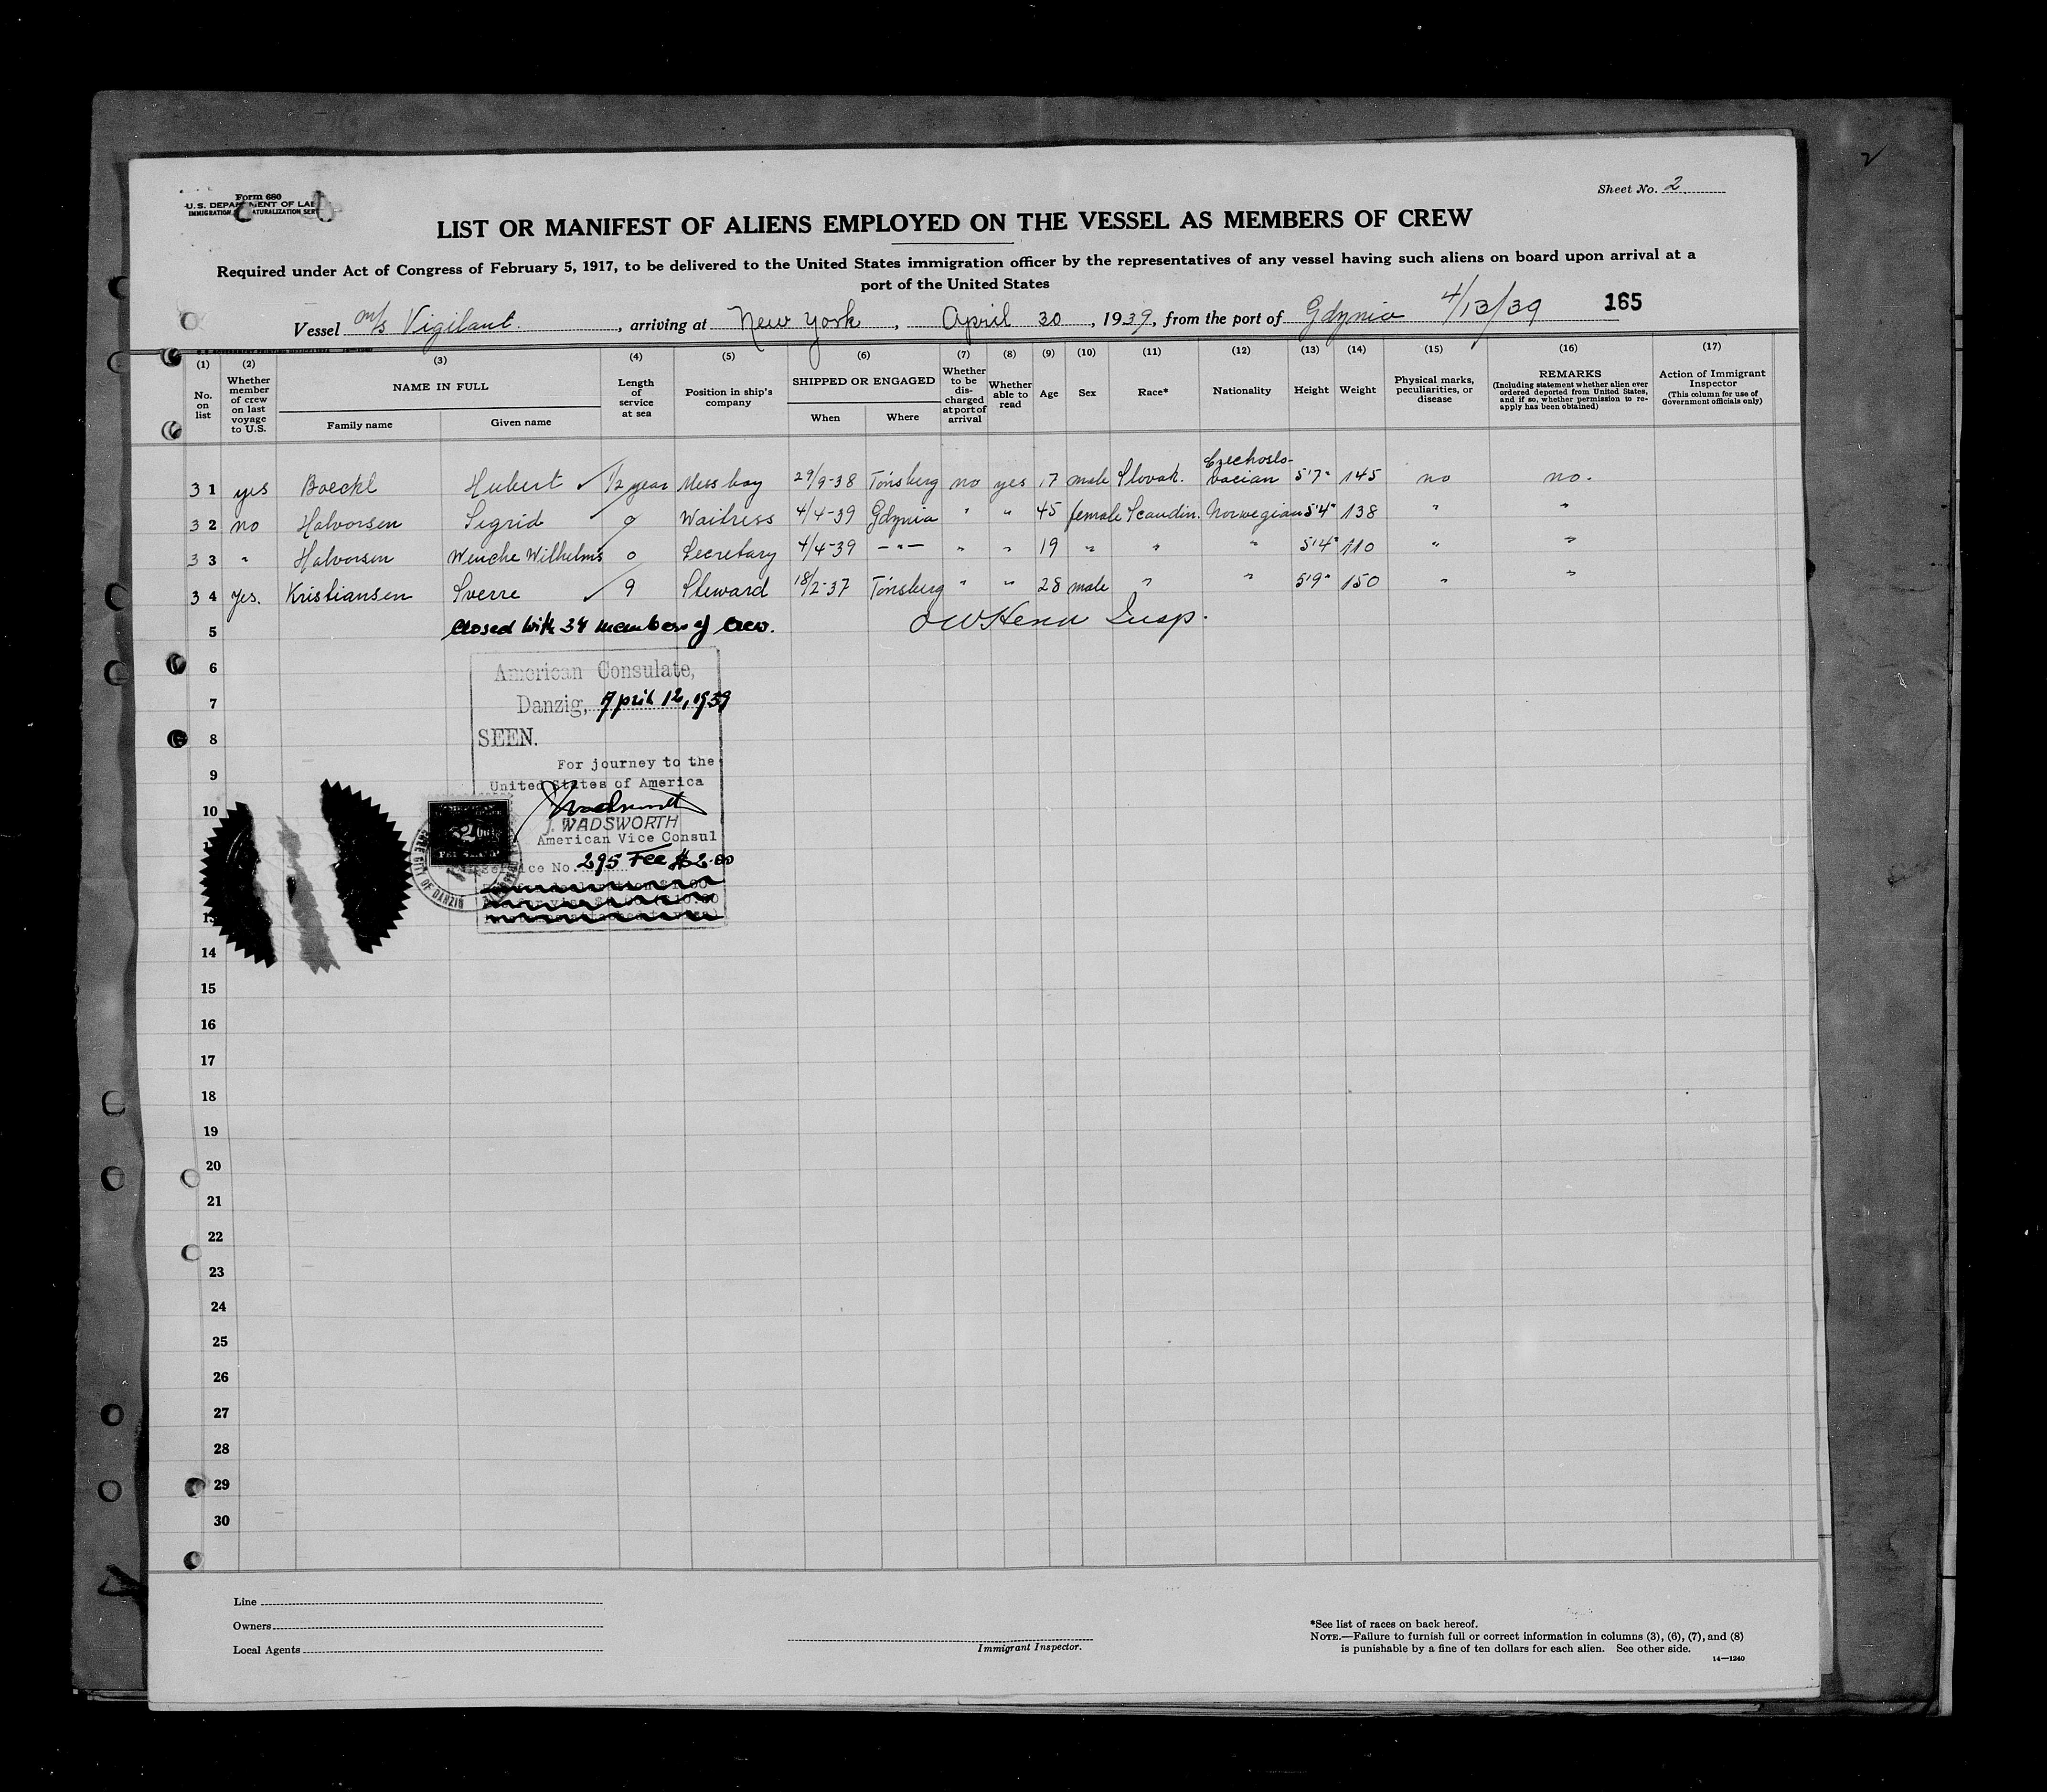 Sheet No. 2
Form 680
U.S. DEPARTMENT OF LAB
IMMIGRATION NATURALIZATION SERV
LIST OR MANIFEST OF ALIENS EMPLOYED ON THE VESSEL AS MEMBERS OF CREW
Required under Act of Congress of February 5, 1917, to be delivered to the United States immigration officer by the representatives of any vessel having such aliens on board upon arrival at a
port of the United States
Vessel m/s Vigilant, arriving at New York, April 30, 1939, from the port of Gdynia 4/13/39 165
(1) (2) (3) (4) (5) (6) (7) (8) (9) (10) (11) (12) (13) (14) (15) (16) (17)
No. on list
Whether member of crew on last voyage to U.S.
NAME IN FULL
Family name
Given name
Length of service at sea
Position in ship's company
SHIPPED OR ENGAGED
When
Where
Whether to be discharged at port of arrival
Whether able to read
Age
Sex
Race*
Nationality
Height
Weight
Physical marks, peculiarities, or disease
REMARKS
(Including statement whether alien ever ordered deported from United States, and if so, whether permission to re-apply has been obtained)
Action of Immigrant Inspector
(This column for use of Government officials only)
31 yes Boeckl Hubert 1/2 year Mess boy 29/9-38 Tönsberg no yes 17 male Slovak. Czechoslovacian 5'7" 145 no no.
32 no Halvorsen Sigrid 0 Waitress 4/4-39 Gdynia " " 45 female Scandin. Norwegian 5'4" 138 " "
33 " Halvorsen Wenche Wilhelms 0 Secretary 4/4-39 -"- " " 19 " " " 5'4" 110 " "
34 Yes. Kristiansen Sverre 9 Steward 18/2-37 Tönsberg " " 28 male " " 5'9" 150 " "
5 closed with 34 members of crew. Insp.
6
American Consulate,
7
Danzig, April 12, 1939
8
SEEN.
9
For journey to the
United States of America
10
J. WADSWORTH
American Vice Consul
Service No. 295 Fee $2.00
CITY OF DANZIG
13
14
15
16
17
18
19
20
21
22
23
24
25
26
27
28
29
30
Line
Owners
Local Agents
Immigrant Inspector.
*See list of races on back hereof.
NOTE.—Failure to furnish full or correct information in columns (3), (6), (7), and (8)
is punishable by a fine of ten dollars for each alien. See other side.
14—1240